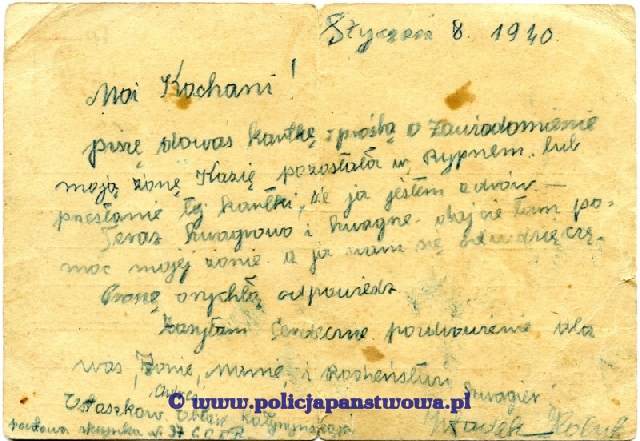 Styczeń 8. 1940.
Moi Kochani!
piszę dowas kartkę z prośbą o zawiadomienie
moją żonę Kazię pozostała w Rypnem. lub
przesłanie tej kartki, że ja jestem zdrów —
Teraz Szwagrowo i szwagrze. dajcie tam po-
moc mojej żonie. a ja wam się odwdzięczę.
Proszę o rychłą odpowiedz
Zasyłam Serdeczne pozdrowienie dla
was, Żonie, Mamie, i Rodzeństwu Szwagier
Adres
Ostaszków
skrzynka N. 37 C.C.C.P.
www.policjapanstwowa.pl